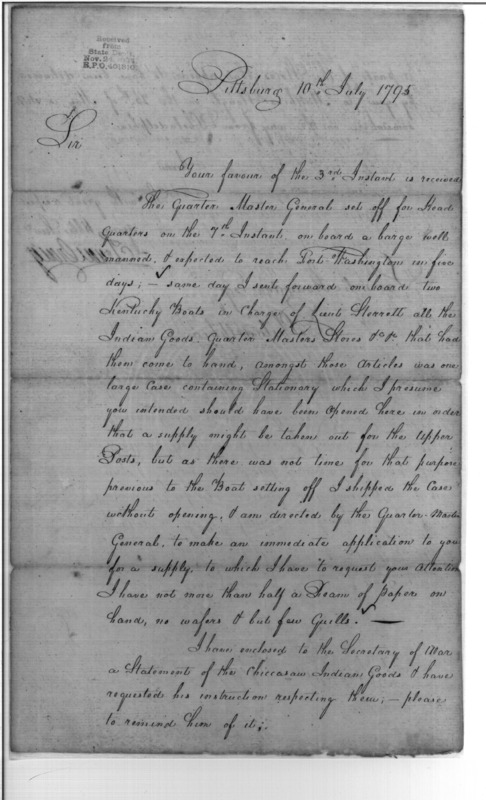 Received
from
State De
Nov. 24
R.P.O.
Pittsburg 10th July 1795
Sir
Your favour of the 3rd Instant is received
The Quarter Master General set off for Head
Quarters on the 7th Instant, on board a barge well
manned, & expected to reach Fort Washington in five
days; — same day I sent forward on board two
Kentucky Boats in Charge of Lieut Sterrett all the
Indian Goods, Quarter Masters Stores &c &c that had
then come to hand, amongst those Articles was one
large Case containing Stationary which I presume
you intended should have been opened here in order
that a supply might be taken out for the Upper
Posts, but as there was not time for that purpose
previous to the Boat setting off I shipped the Case
without opening, & am directed by the Quarter Master
General, to make an immediate application to you
for a supply, to which I have to request your Attention
I have not more than half a Ream of paper on
hand, no wafers & but few Quills. —
I have enclosed to the Secretary of War
a Statement of the Chiccasaw Indian Goods & have
requested his instruction respecting them; — please
to remind him of it;.